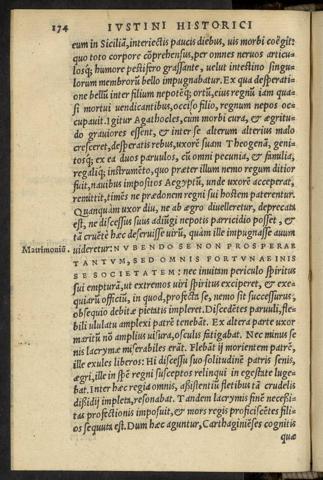 174 IVSTINI HISTORICI
eum in Siciliã, interiectis paucis diebus, uis morbi coëgit:
quo toto corpore cõprehensus, per omnes neruos articu-
losq; humore pestifero grassante, uelut intestino singu-
lorum membrorũ bello impugnabatur. Ex qua desperati-
one bellũ inter filium nepotẽq; ortũ, eius regnũ iam qua-
si mortui uendicantibus, occiso filio, regnum nepos oc-
cupauit. Igitur Agathocles, cum morbi cura, & ægritu-
do grauiores essent, & inter se alterum alterius malo
cresceret, desperatis rebus, uxorẽ suam Theogenã, geni-
tosq; ex ea duos paruulos, cũ omni pecunia, & familia,
regaliq; instrumẽto, quo præter illum nemo regum ditior
fuit, nauibus impositos Aegyptũ, unde uxorẽ acceperat,
remittit, timẽs ne prædonem regni sui hostem paterentur.
Quanquàm uxor diu, ne ab ægro diuelleretur, deprecata
est, ne discessus suus adiũgi nepotis parricidio posset, &
tã cruẽtè hæc deseruisse uirũ, quàm ille impugnasse auum
Matrimoniũ. uideretur: NVBENDO SE NON PROSPERAE
TANTVM, SED OMNIS FORTVNAE INIS
SE SOCIETATEM: nec inuitam periculo spiritus
sui empturã, ut extremos uiri spiritus exciperet, & exe-
quiarũ officiũ, in quod, profecta se, nemo sit successurus;
obsequio debitæ pietatis impleret. Discedẽtes paruuli, fle-
bili ululatu amplexi patrẽ tenebãt. Ex altera parte uxor
maritũ nõ amplius uisura, osculis fatigabat. Nec minus se
nis lacrymæ miserabiles erãt. Flebãt ij morientem patrẽ,
ille exules liberos: Hi discessu suo solitudinẽ patris senis,
ægri, ille in spẽ regni susceptos relinqui in egestate luge-
bat. Inter hæc regia omnis, assistentiũ fletibus tã crudelis
dissidij impleta, resonabat. Tandem lacrymis finẽ necessi-
tas profectionis imposuit, & mors regis proficiscẽtes fili-
os sequuta est. Dum hæc aguntur, Carthaginẽses cognitis
quæ